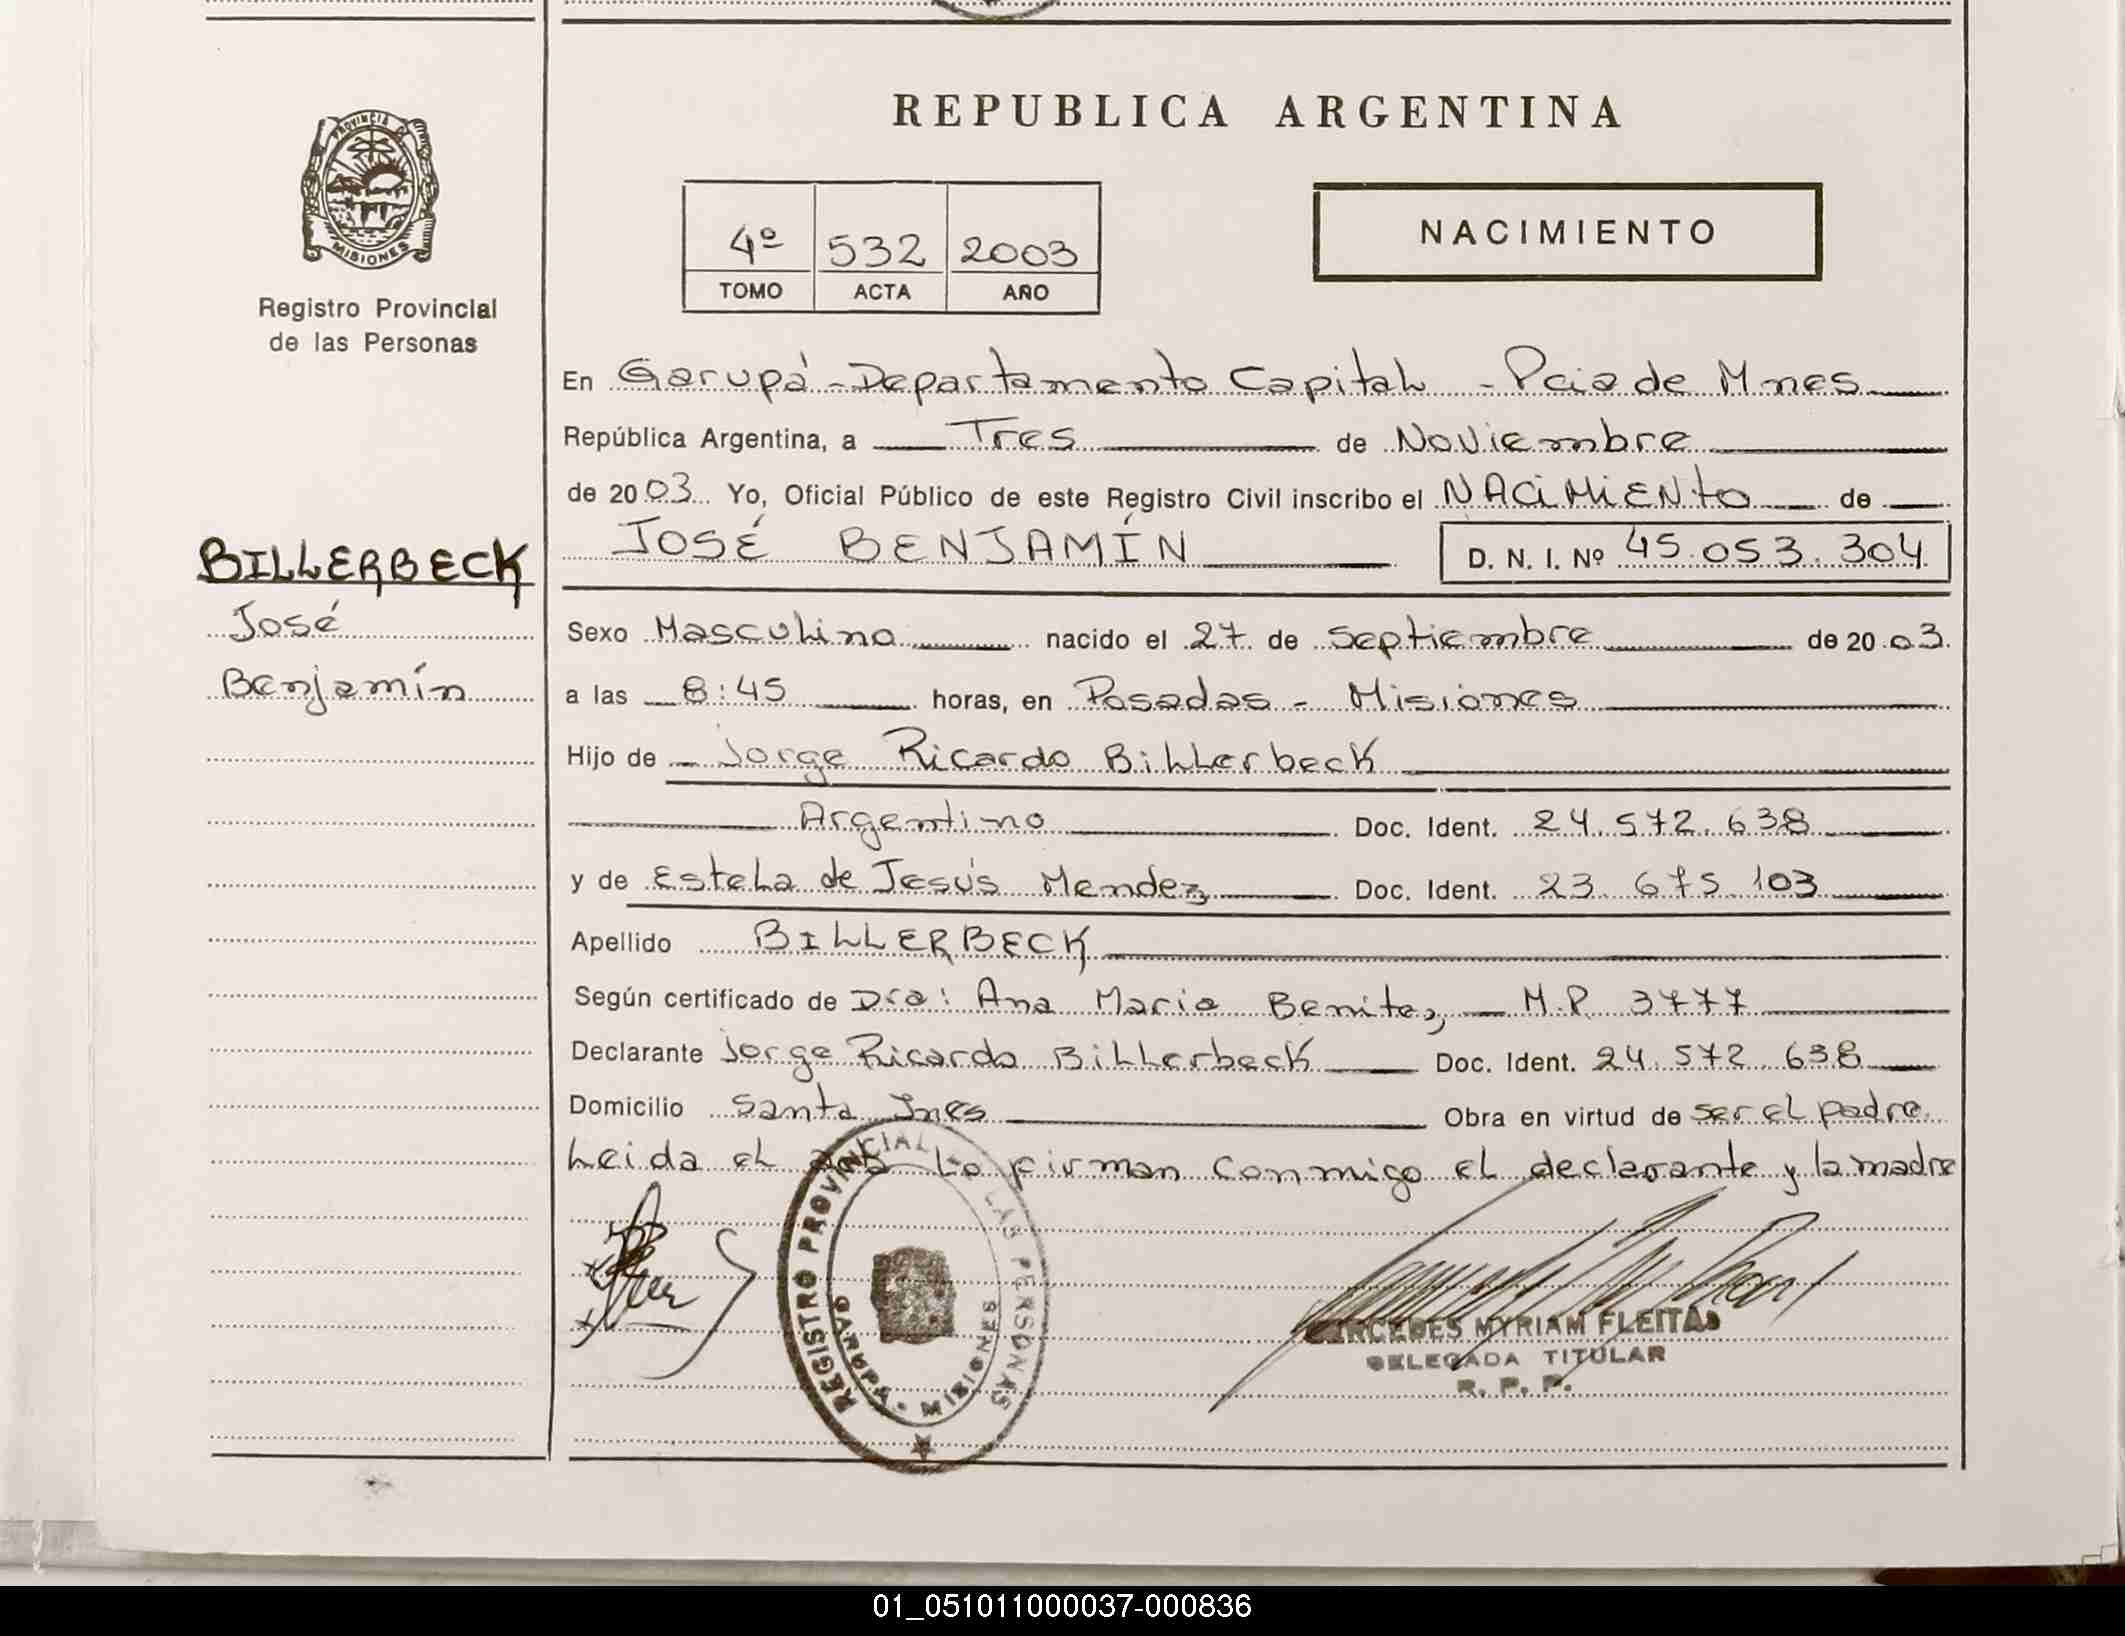 REPUBLICA ARGENTINA
PROVINCIA D
MISIONES
Registro Provincial
de las Personas
4º 532 2003
TOMO ACTA AÑO
NACIMIENTO
En Garupá - Departamento Capital - Pcia de Mnes
República Argentina, a Tres de Noviembre
de 2003 Yo, Oficial Público de este Registro Civil inscribo el NACIMIENTO de
JOSÉ BENJAMÍN D. N. I. Nº 45.053.304
BILLERBECK
José
Benjamín
Sexo Masculino nacido el 27 de Septiembre de 2003.
a las 8:45 horas, en Posadas - Misiones
Hijo de Jorge Ricardo Billerbeck
Argentino Doc. Ident. 24.572.638
y de Estela de Jesús Mendez Doc. Ident. 23.675.103
Apellido BILLERBECK
Según certificado de Dra: Ana Maria Benitez M.P. 3777
Declarante Jorge Ricardo Billerbeck Doc. Ident. 24.572.638
Domicilio Santa Ines Obra en virtud de ser el padre.
Leida el acta la firman conmigo el declarante y la madre
REGISTRO PROVINCIAL LAS PERSONAS
GARUPA - MISIONES
MERCEDES MYRIAM FLEITAS
DELEGADA TITULAR
R. P. P.
01_051011000037-000836